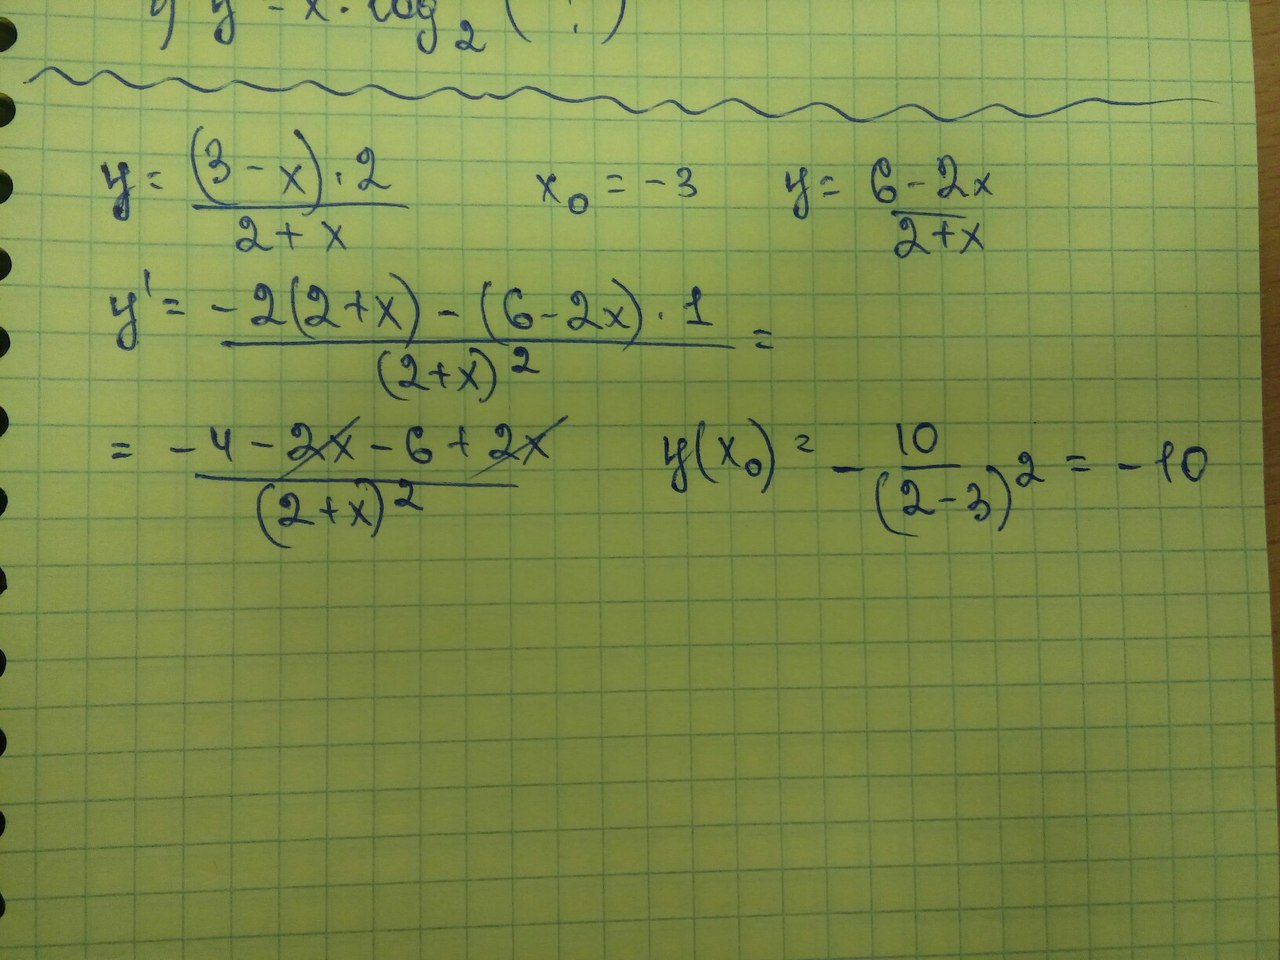 y = x · log₂ (
y = ((3 - x) · 2)/(2 + x) x₀ = -3 y = (6 - 2x)/(2 + x)
y' = (-2(2 + x) - (6 - 2x) · 1)/(2 + x)² =
= (-4 - 2x - 6 + 2x)/(2 + x)² y(x₀) = - 10/(2 - 3)² = -10